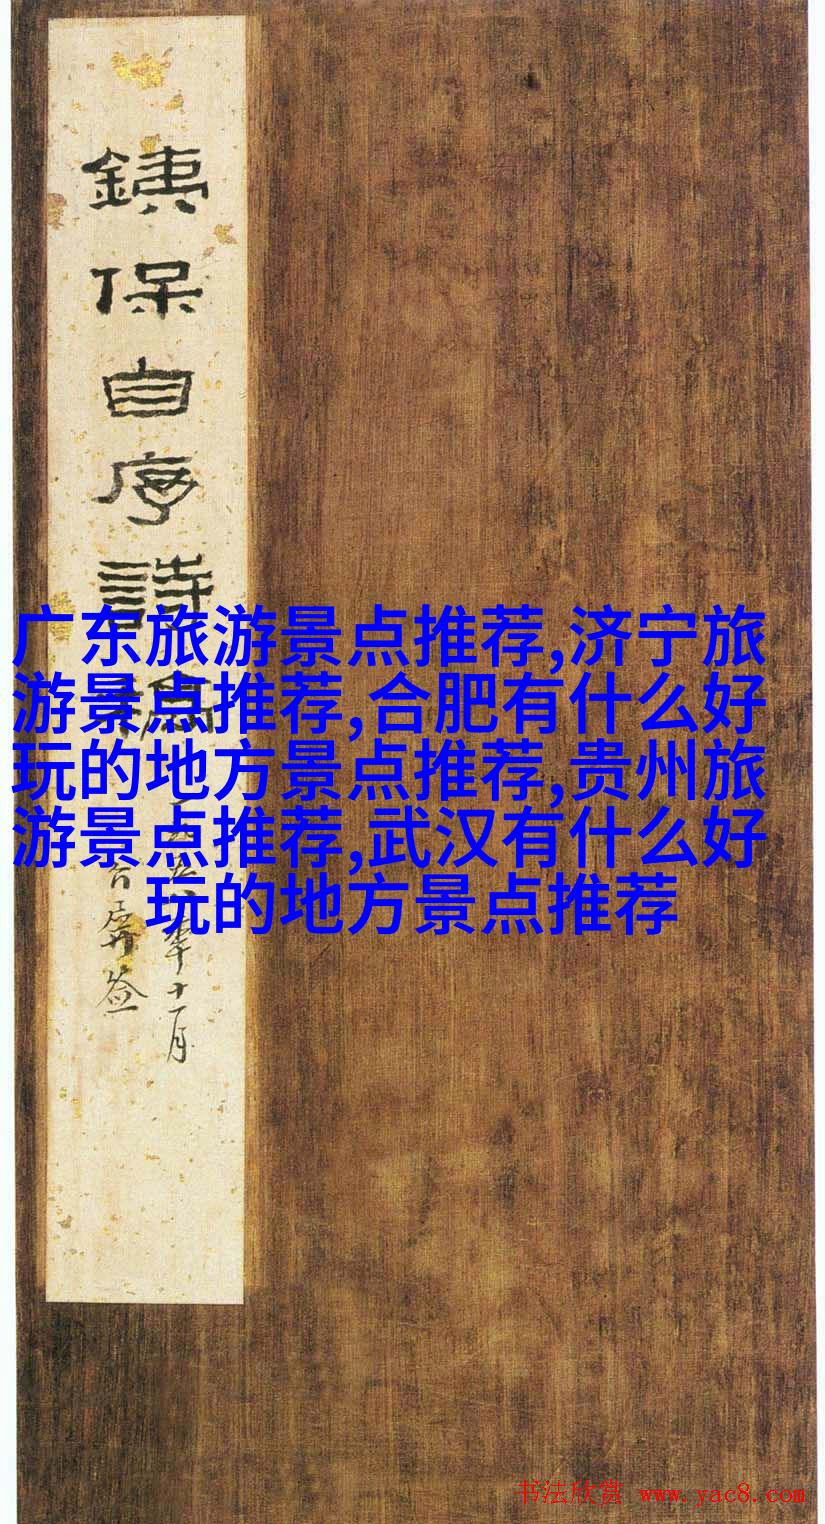 銕保自序詩稿
广东旅游景点推荐,济宁旅
游景点推荐,合肥有什么好
玩的地方景点推荐,贵州旅
游景点推荐,武汉有什么好
玩的地方景点推荐
年十一月
屏签
书法欣赏 www.yac8.com